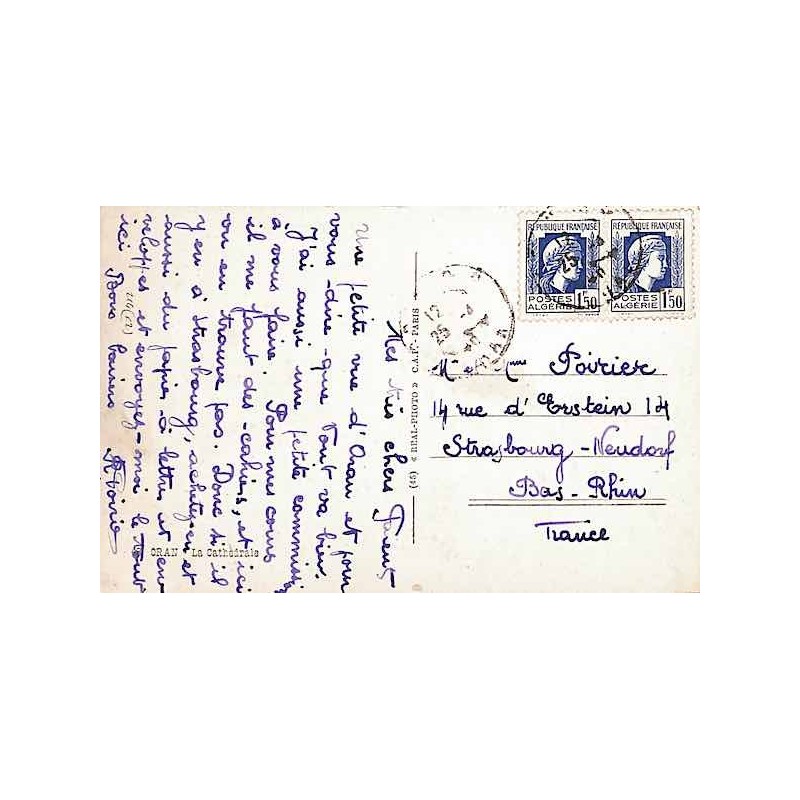 Mes très chers Parents
Une petite vue d'Oran et pour
vous-dire-que tout va bien.
J'ai aussi une petite commission
à vous faire. Pour mes cours
il me faut des-cahiers, et ici
on en trouve pas. Donc s'il
y en a à Strasbourg, achetez-en et
aussi du papier-à lettres et en-
veloppes et envoyez-moi le tout
ici Bons baisers
ORAN - La Cathédrale
(45) « REAL-PHOTO » C.A.P. - PARIS
RÉPUBLIQUE FRANÇAISE
POSTES
ALGÉRIE 1F50
RÉPUBLIQUE FRANÇAISE
POSTES
ALGÉRIE 1F50
12
25
ORAN
Mr et Mme Poirier
14 rue d'Erstein 14
Strasbourg-Neudorf
Bas-Rhin
France